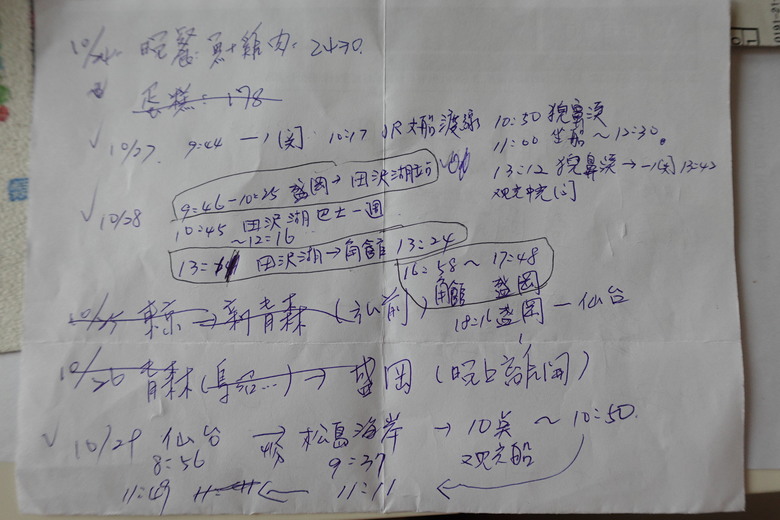 10/24 晚餐: 魚+雞肉: 2430.
蛋糕: 178
✓ 10/27. 9:44 一関 10:17 JR大船渡線
10:50 猊鼻渓
11:00 坐船 ~ 12:30.
13:12 猊鼻渓 → 一関 13:43
✓ 10/28 9:46-10:25 盛岡 → 田沢湖
10:45 田沢湖巴士一週
~12:16
13: 田沢湖 → 角館 13:24
16:58 ~ 17:48
角館 盛岡
18:16 盛岡 - 仙台
10/25 東京 → 新青森 (弘前)
10/26 青森( ...) → 盛岡 (晚上
✓ 10/29 仙台 → 松島海岸 → 10点 ~ 10:50.
8:56 9:37 观光船
11:49 ← 11:11